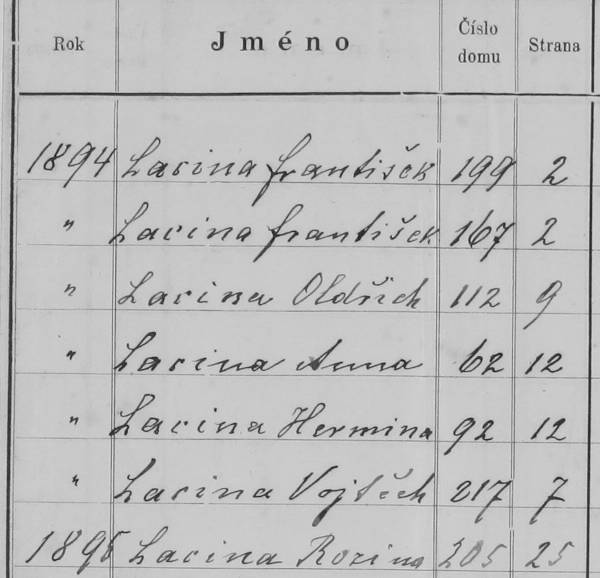 Rok Jméno Číslo domu Strana
1894 Lacina František 199 2
" Lacina František 167 2
" Lacina Oldřich 112 9
" Lacina Anna 62 12
" Lacina Hermina 92 12
" Lacina Vojtěch 217 7
1895 Lacina Rozina 205 25